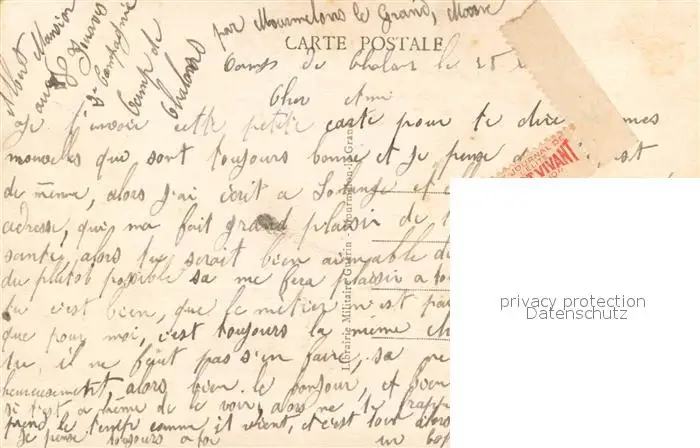 Albert Mansion
au
2e Compagnie
Camp de
Chalons
par Mourmelons le Grand, Marne
CARTE POSTALE
Camp de Chalons le 25
Cher Ami
Je t'envoie cette petite carte pour te dire mes
nouvelles que sont toujours bonne et Je pense est
de même, alors j'ai écrit a Solange et
adresse, qui ma fait grand plaisir de
santé, alors tu serait bien aimable de
du plutot possible sa me fera plaisir a
tu c'est bien, que le métier n'est pas
que pour moi, c'est toujours la même
tu, il ne faut pas s'en faire, sa ne
heureusement, alors bien le bonjour, et bien
si t'est a même de le voir, alors ne
prend le temps comme il vient, et c'est loin alors
Je pense toujours a toi un
Librairie Militaire Guérin - Mourmelon-le-Grand
JOURNAL DE
VIVANT
privacy protection
Datenschutz